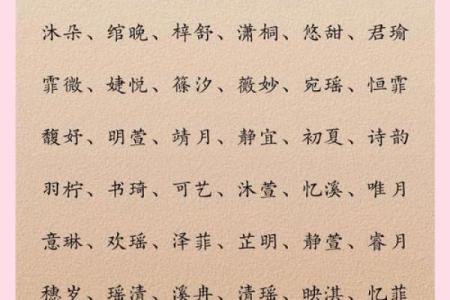 沐朵、绾晚、梓舒、潇桐、悠甜、君瑜
霏微、婕悦、篠汐、薇妙、宛瑶、恒霏
馥妤、明萱、靖月、静宜、初夏、诗韵
羽柠、书琦、可艺、沐萱、忆溪、唯月
意琳、欢瑶、泽菲、芷明、静萱、睿月
穗岁、瑶清、溪冉、清瑶、映淇、忆菲